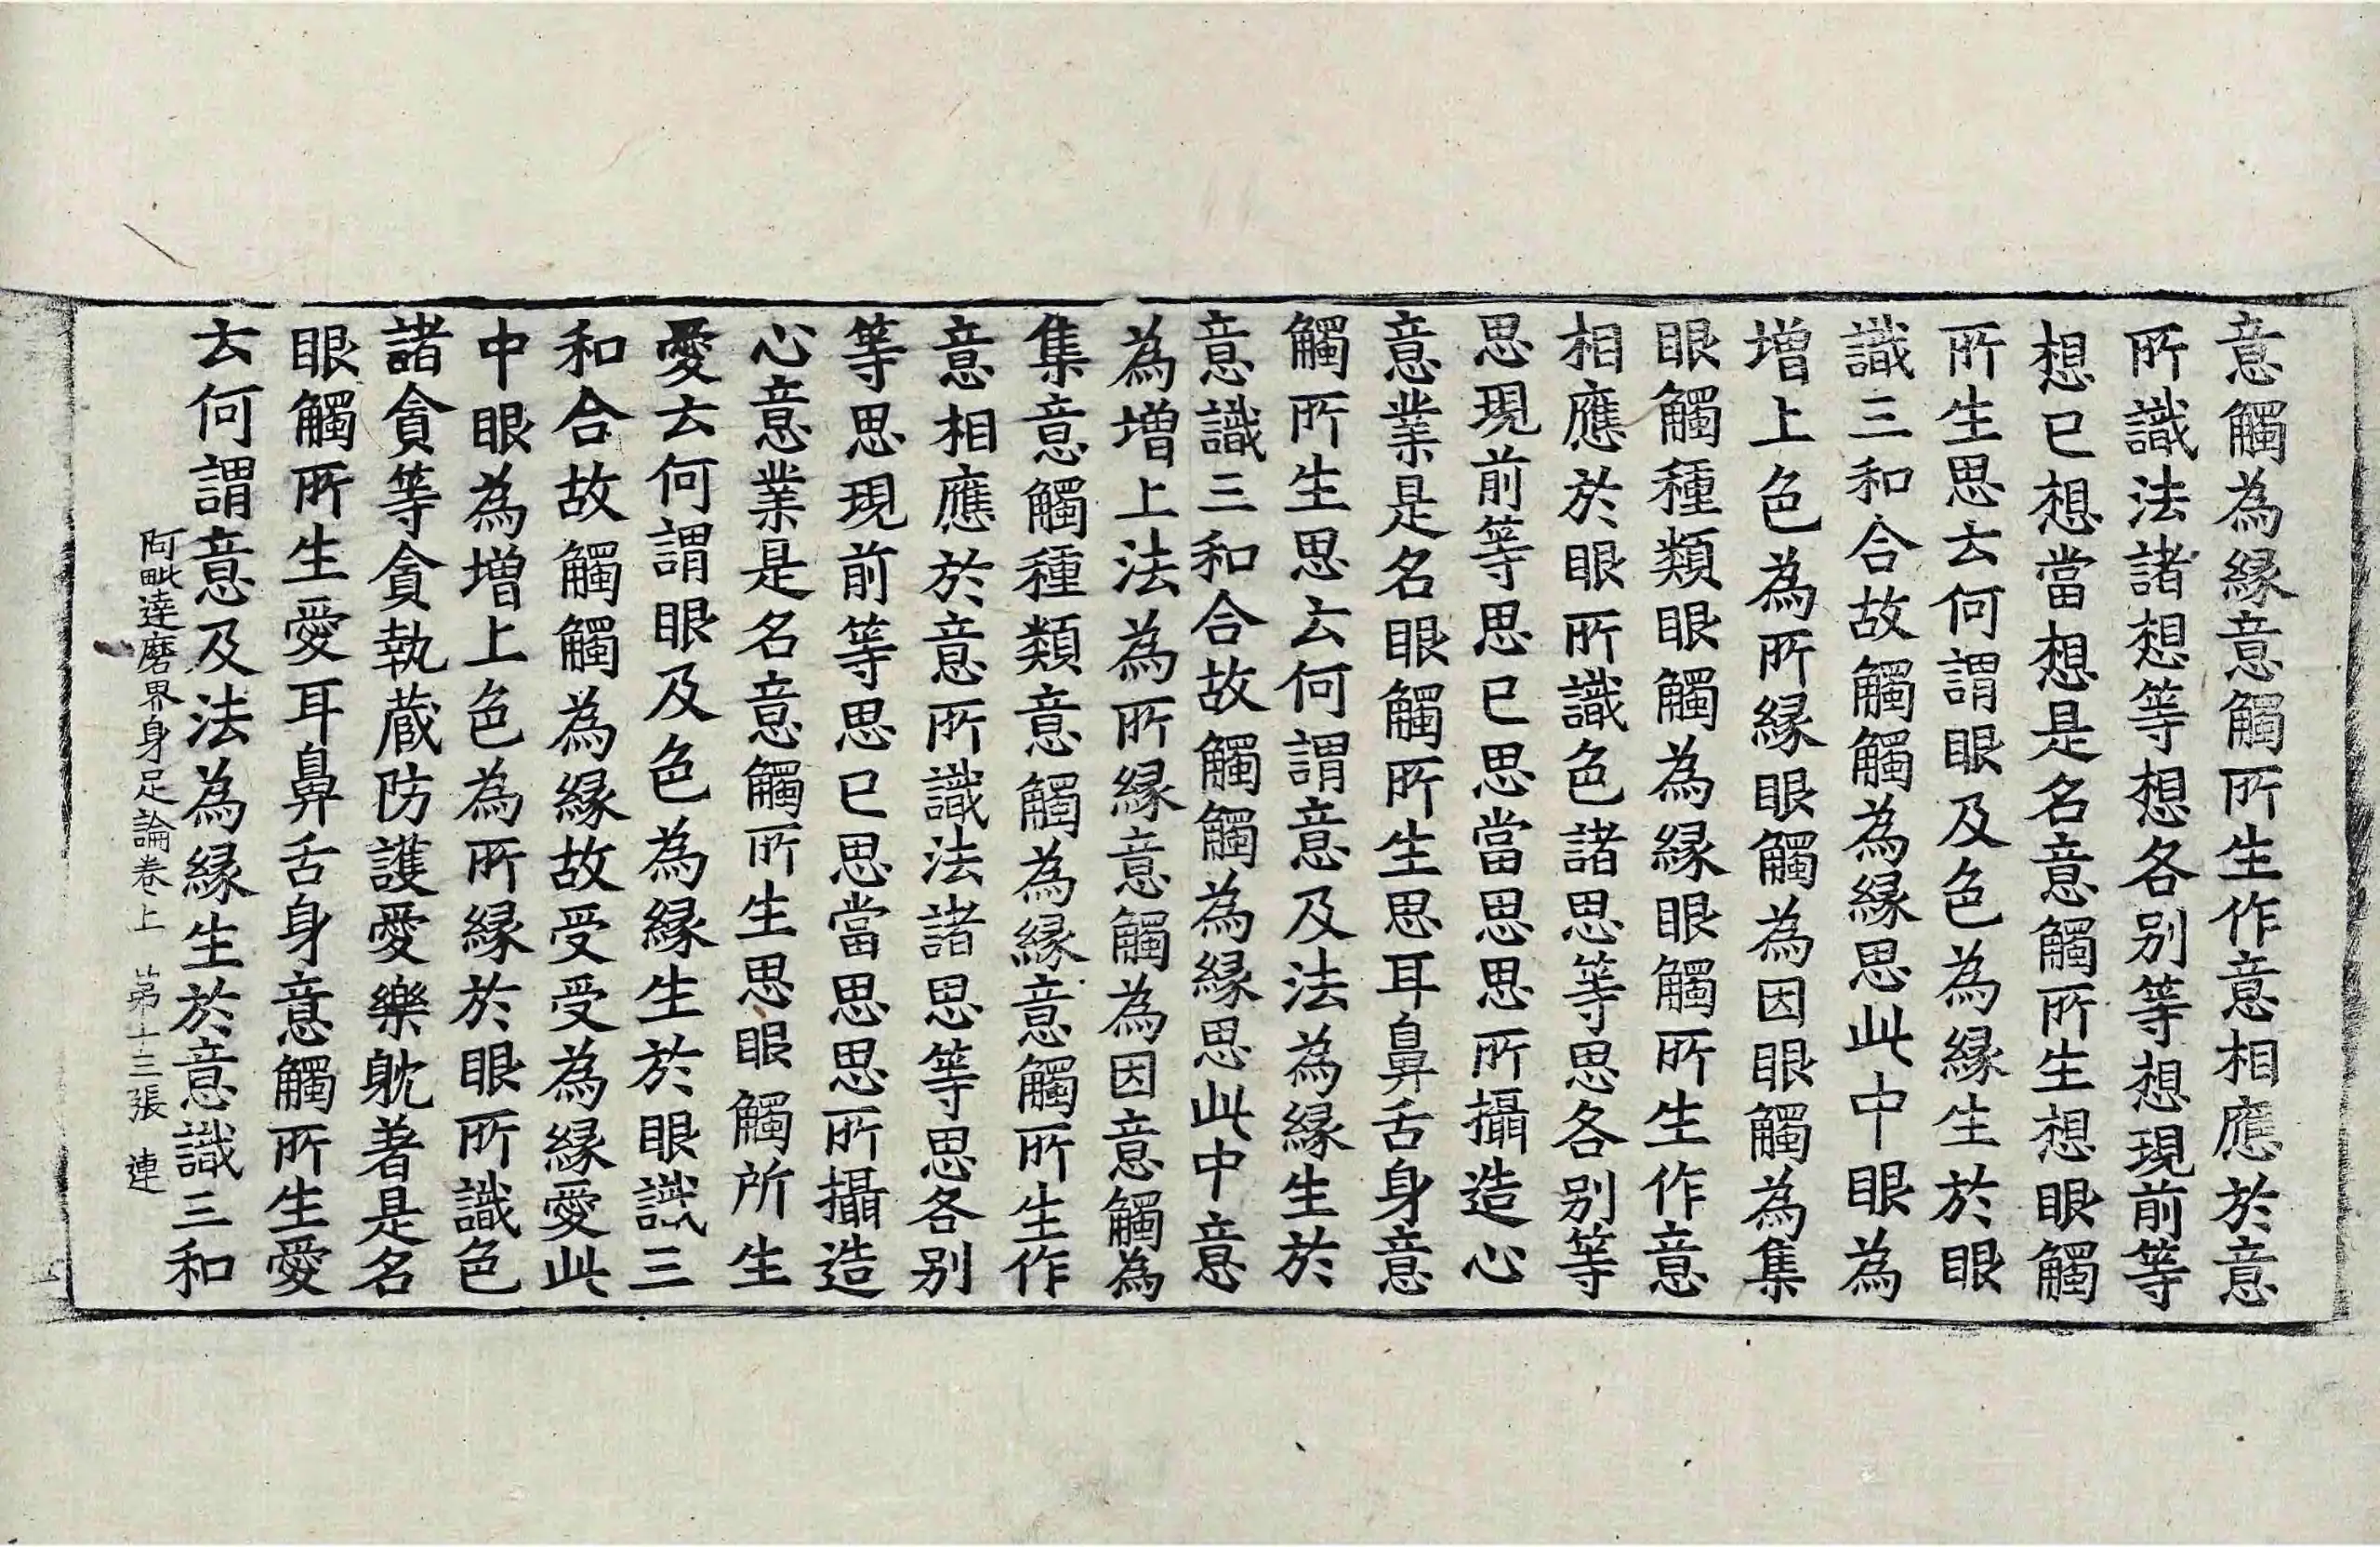 意觸為縁意觸所生作意相應於意
所識法諸想等想各別等想現前等
想已想當想是名意觸所生想眼觸
所生思云何謂眼及色為縁生於眼
識三和合故觸觸為縁思此中眼為
增上色為所縁眼觸為因眼觸為集
眼觸種類眼觸為縁眼觸所生作意
相應於眼所識色諸思等思各別等
思現前等思已思當思思所攝造心
意業是名眼觸所生思耳鼻舌身意
觸所生思云何謂意及法為縁生於
意識三和合故觸觸為縁思此中意
為增上法為所縁意觸為因意觸為
集意觸種類意觸為縁意觸所生作
意相應於意所識法諸思等思各別
等思現前等思已思當思思所攝造
心意業是名意觸所生思眼觸所生
愛云何謂眼及色為縁生於眼識三
和合故觸觸為縁故受受為縁愛此
中眼為增上色為所縁於眼所識色
諸貪等貪執蔵防護愛樂躭著是名
眼觸所生愛耳鼻舌身意觸所生愛
云何謂意及法為縁生於意識三和
阿毗達磨界身足論卷上 苐十三張 連